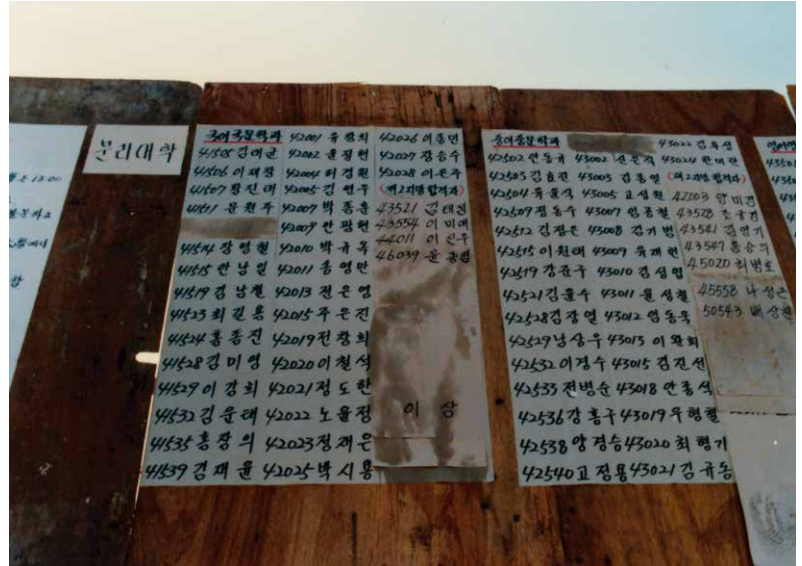 문리대학
국어국문학과
41505 김미균
41506 이재장
41507 황진미
41511 문원주
41514 장영철
41515 안남일
41519 김남철
41523 최길용
41524 홍종진
41528 김미영
41529 이강희
41532 김윤태
41535 홍장의
41539 김재윤
42001 유창희
42002 윤정현
42004 허경원
42005 김연우
42007 박종훈
42009 안광현
42010 박규옥
42011 송영만
42013 전은영
42015 주은진
42019 전창희
42020 이철석
42021 정도한
42022 노윤정
42023 정재은
42025 박시용
42026 이종민
42027 장승수
42028 이은주
(제2지망합격자)
43521 김태섭
43554 이미애
44011 이선우
46039 윤종섭
이상
중어중문학과
42502 안동규
42503 김효진
42504 유윤식
42509 정동수
42512 김정은
42515 이원태
42519 강윤구
42521 김윤수
42528 김장열
42529 남상우
42532 이경수
42533 전병순
42536 강홍구
42538 양경승
42540 고정용
43002 신은식
43003 김종열
43005 고성원
43007 임종철
43008 김기범
43009 유재현
43010 김성엽
43011 윤성철
43012 엄동욱
43013 이완희
43015 김진선
43018 안홍석
43019 우형철
43020 최형기
43021 김규동
43022 김우성
43024 한미란
(제2지망합격자)
42003 양미경
43528
43541 김영기
43547 홍승의
45020 최병호
45558 나성은
50543 배상현